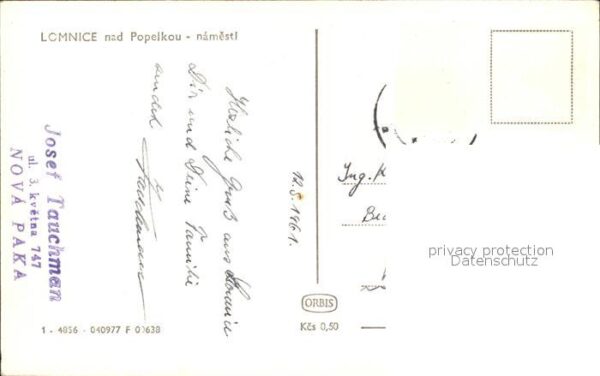 LOMNICE nad Popelkou - náměstí
Herzliche Grüß aus Lomnice
Dir und Deine Familie
sendet Tauchman
Josef Tauchman
ul. 3. května 747
NOVÁ PAKA
12.8.1961.
Ing. K
Be
privacy protection
Datenschutz
ORBIS
Kčs 0,50
1 - 4856 - 040977 F 00638